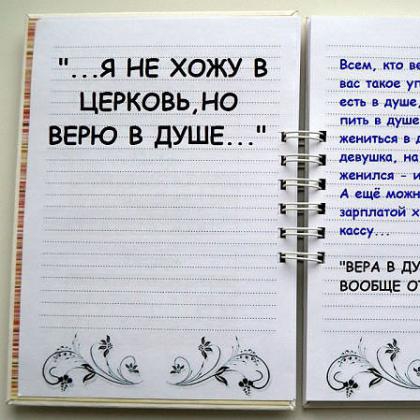 "...Я НЕ ХОЖУ В
ЦЕРКОВЬ,НО
ВЕРЮ В ДУШЕ..."
Всем, кто
вас такое
есть в душе,
пить в душе
жениться в
девушка, на
женился - и
А ещё
зарплатой
кассу...
"ВЕРА В
ВООБЩЕ